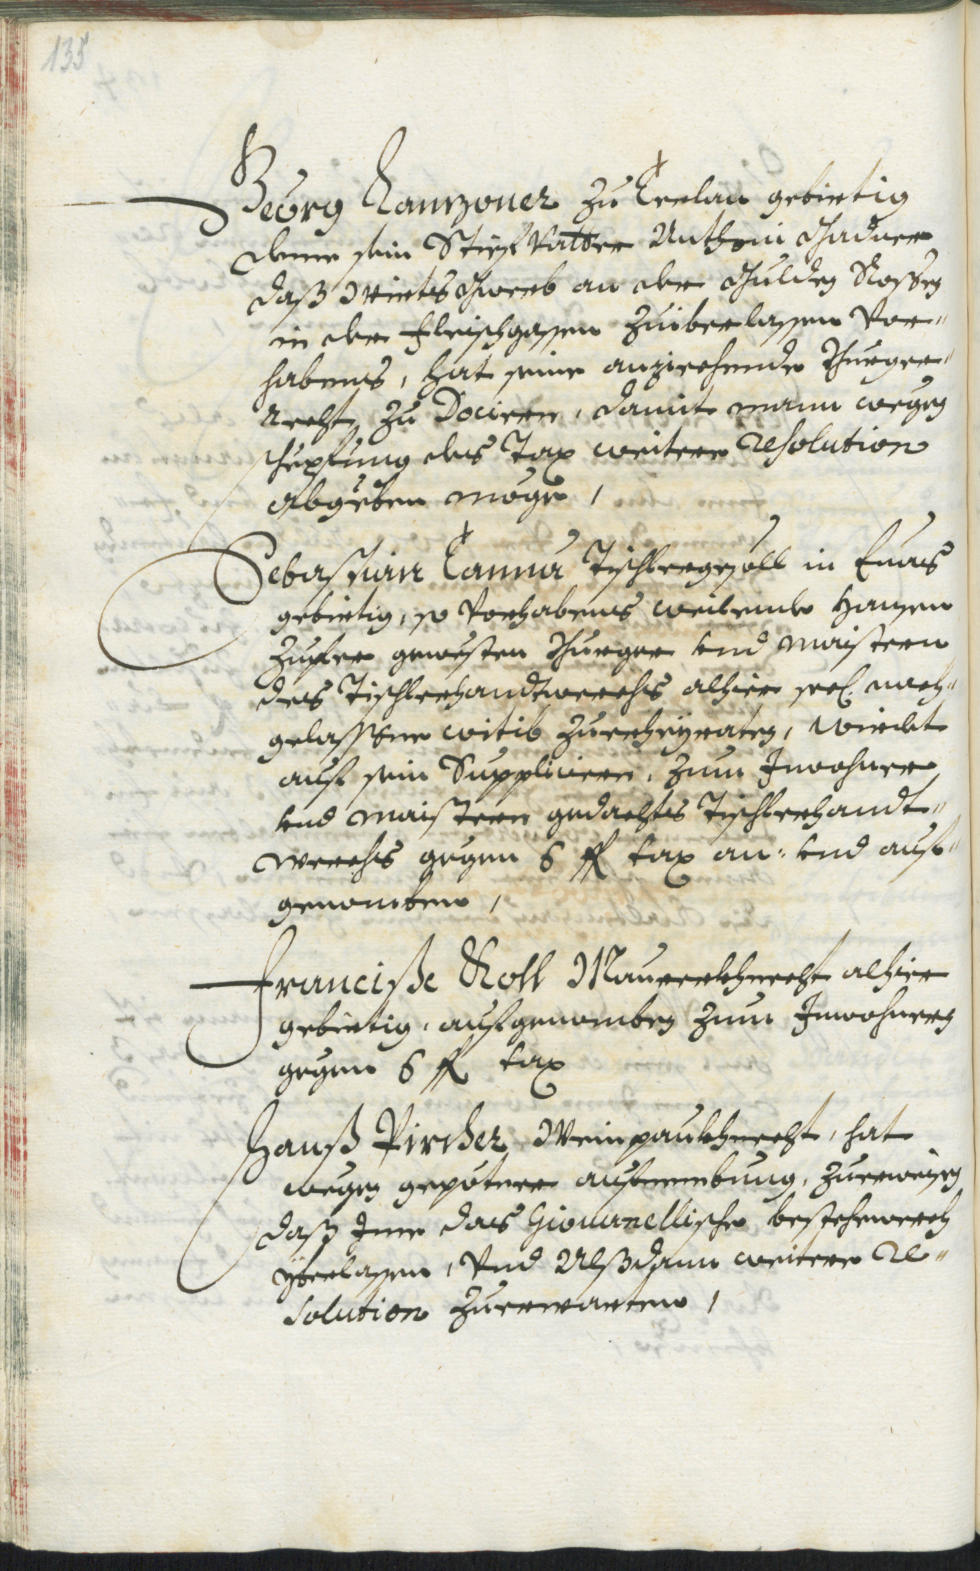 135
Georg Ramzoner zu Terlan gebirtig
deme sein Stieff Vatter Anthoni Gadner
daß Wirtsgwerb an der Gulden Rossen
in der Fleischgassen zuiberlassen Vor-
habens, hat seine anziechende Burger-
recht zu Docirn, damit mann wegen
schepfung des Tax weitere resolution
Abgeben möge,
Sebastian Tanna Tischlergesöll in Enas
gebirtig, so Vorhabens weilendt Hansen
gewesten Burger und Maistern
des Tischlerhandtwerchs alhier sel. nach-
gelassene witib zuerheyraten, wirdet
auf sein Suppliciern, zum Inwohner
und Maistern gedachts Tischlerhandt-
werchs gegen 6 fl tax an- und auf-
genomben,
Francisc Roll Maurerkhnecht alhier
gebirtig, aufgenomben zum Inwohnern
gegen 6 fl tax
Hanß Pircher Weinpaukhnecht, hat
wegen gepetner aufnembung, zuerweisen
daß Ime das Giovanellische bestehnwerch
yberlassen, Und Alßdann weitere Re-
solution zuerwarten,